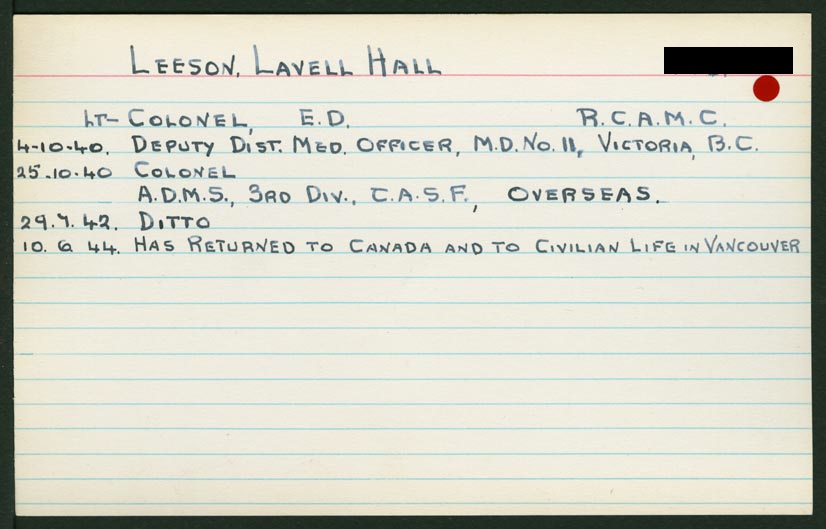 LEESON, LAVELL HALL
LT-COLONEL, E.D. R.C.A.M.C.
4-10-40. DEPUTY DIST. MED. OFFICER, M.D. No. 11, VICTORIA, B.C.
25-10-40 COLONEL
A.D.M.S., 3RD DIV., C.A.S.F., OVERSEAS.
29.7.42. DITTO
10. 6 44. HAS RETURNED TO CANADA AND TO CIVILIAN LIFE IN VANCOUVER